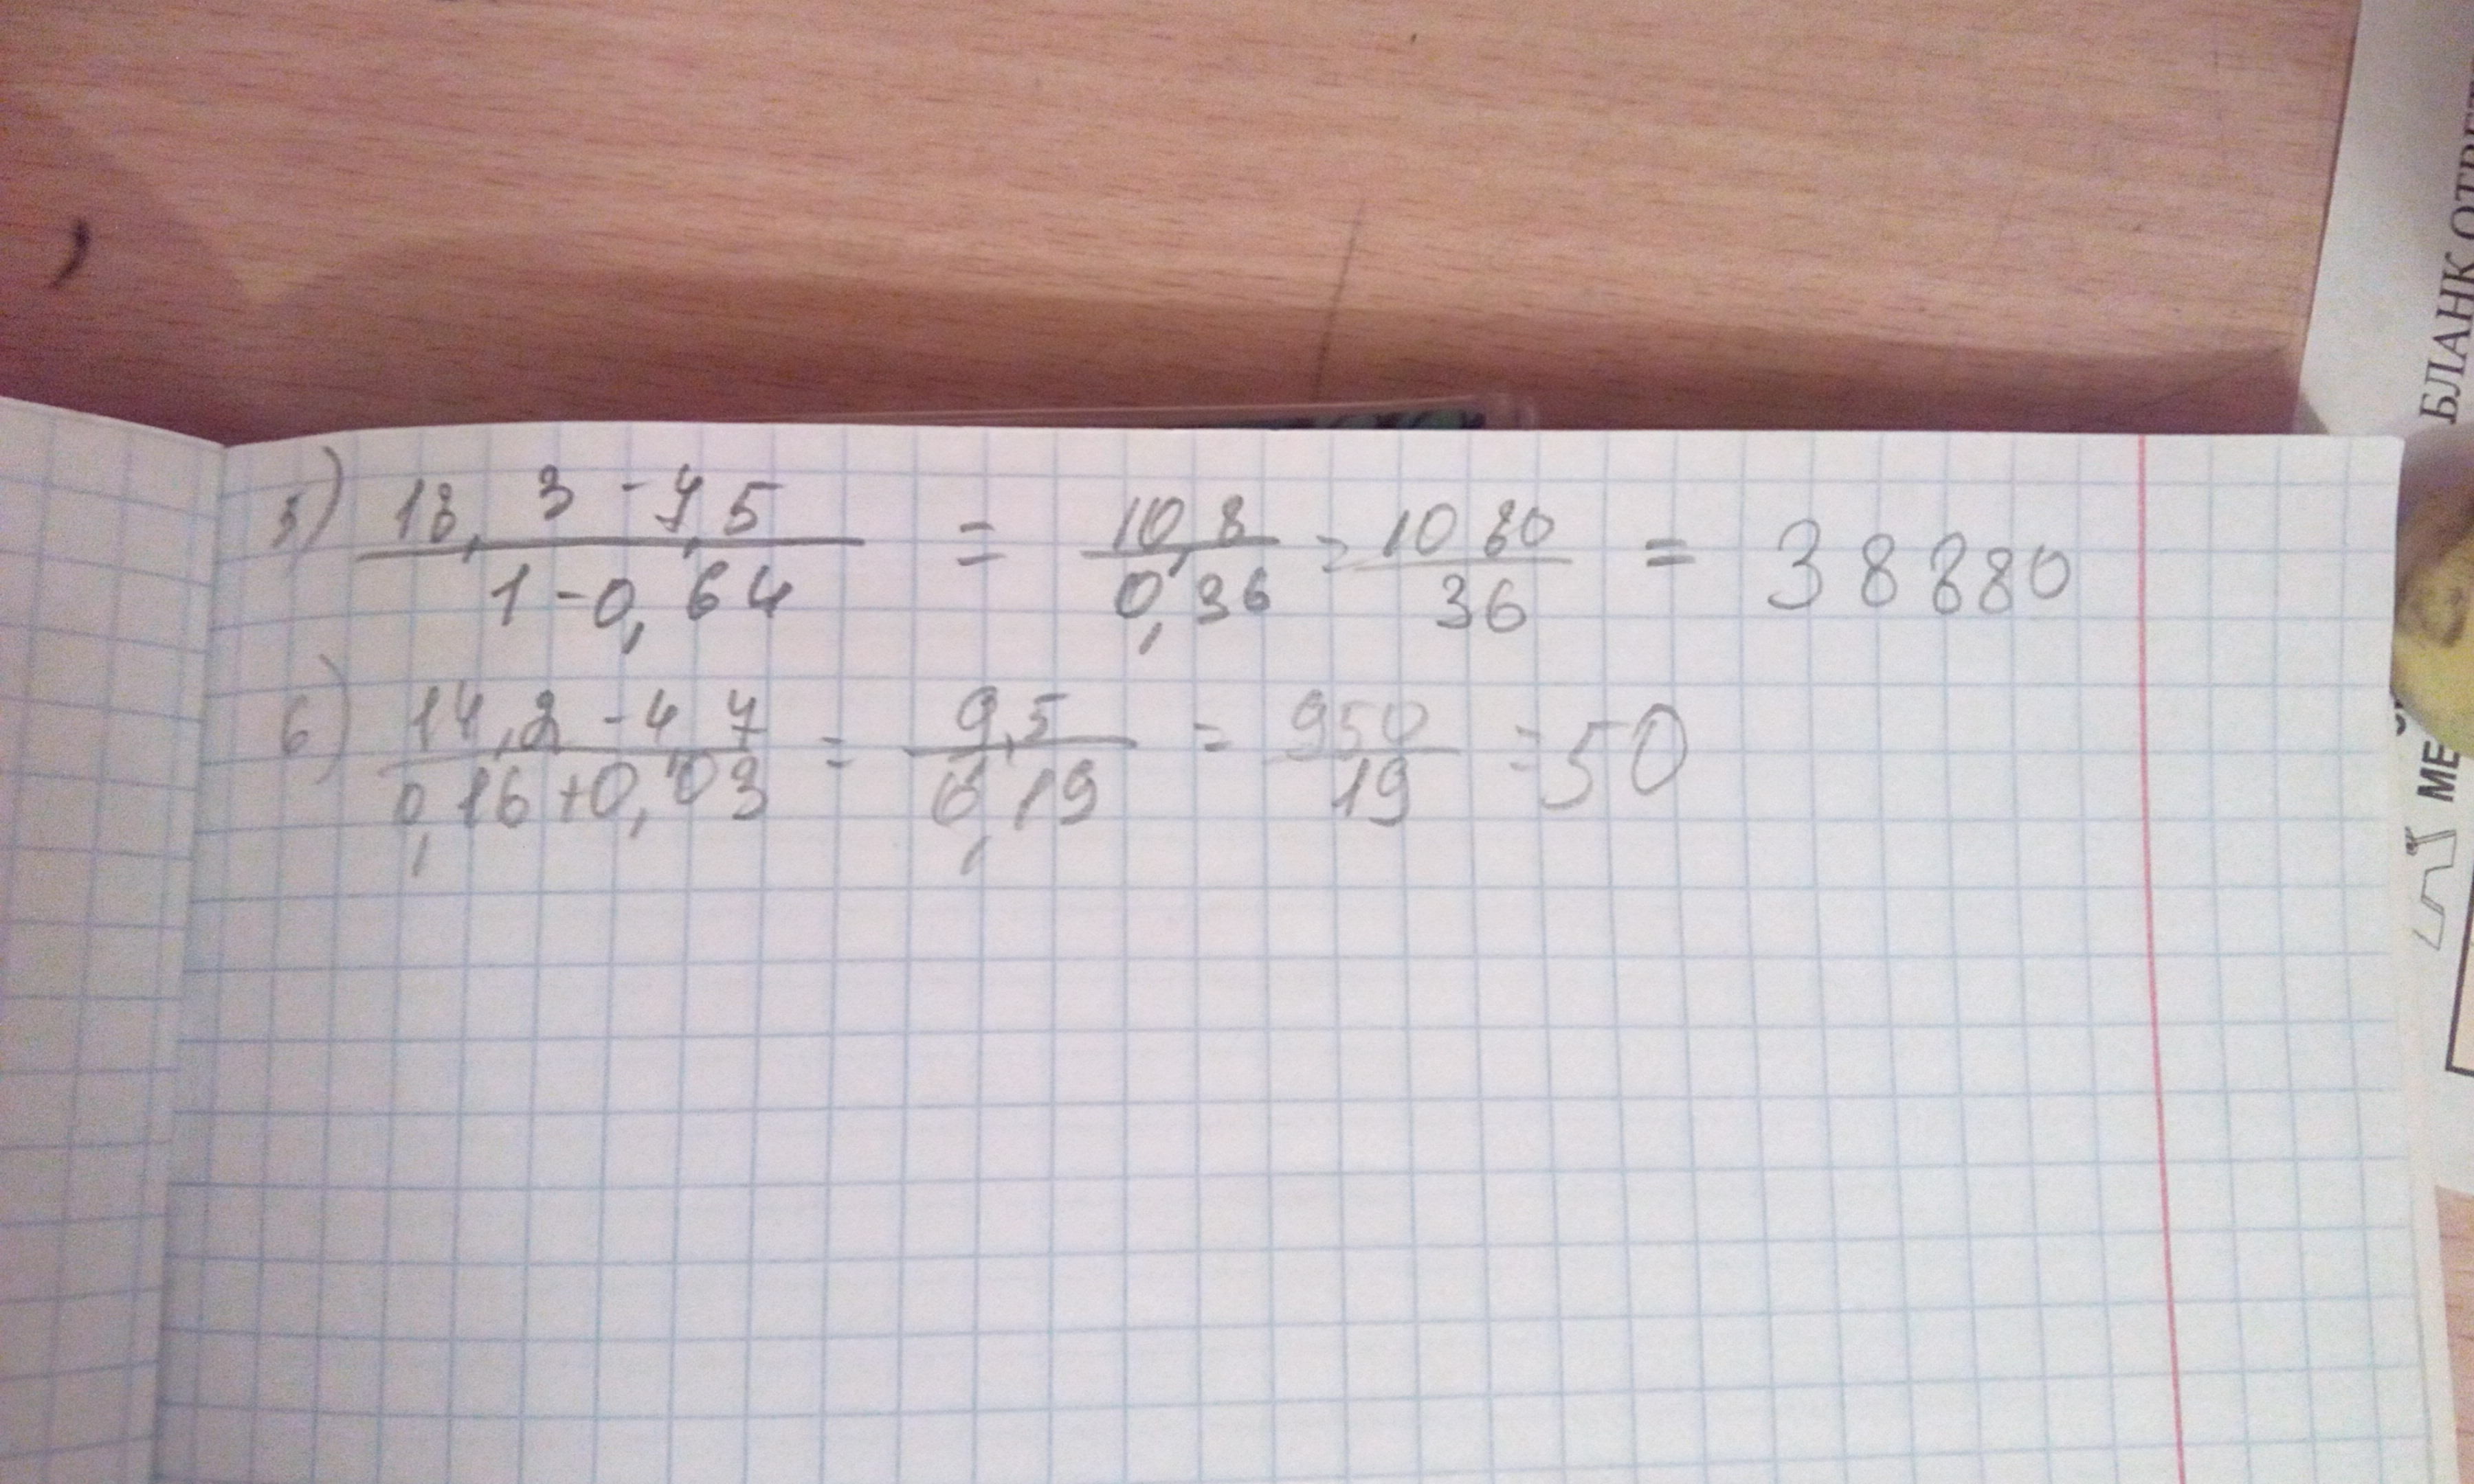 5) (18,3 - 7,5) / (1 - 0,64) = 10,8 / 0,36 = 1080 / 36 = 38880
6) (14,2 - 4,7) / (0,16 + 0,03) = 9,5 / 0,19 = 950 / 19 = 50
БЛАНК ОТВЕТ
МЕ